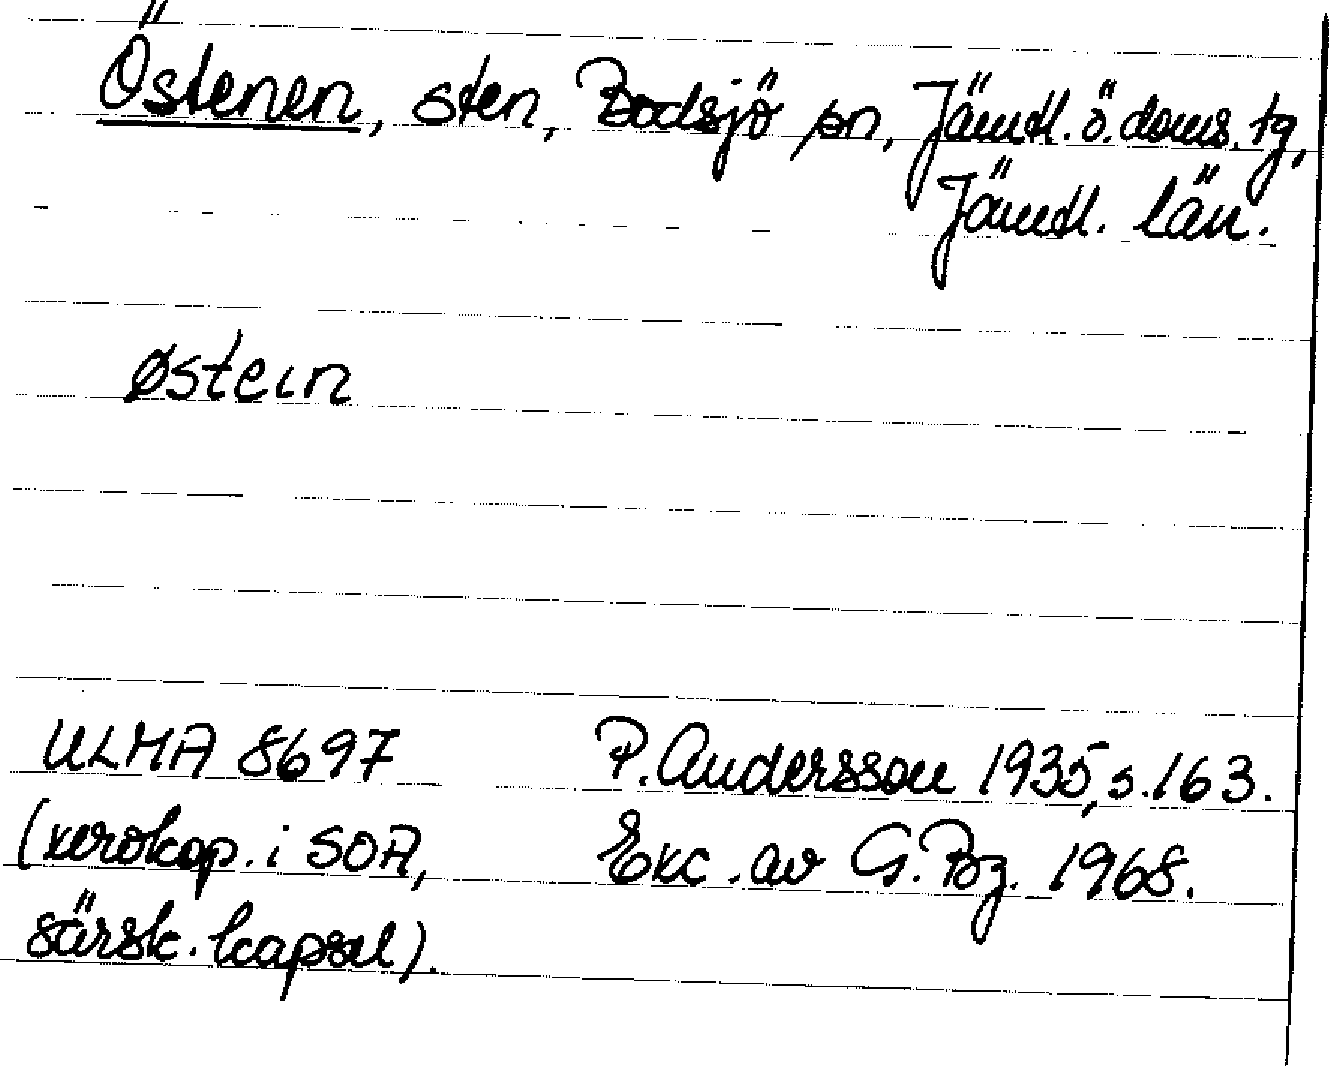 Östenen, sten, Bodsjö sn, Jämtl. ö. doms. tg,
Jämtl. län.
østein
ULMA 8697 P. Andersson 1935, s. 163.
(xerokop. i SOA, Exc. av G. Bz. 1968.
särsk. kapsel).